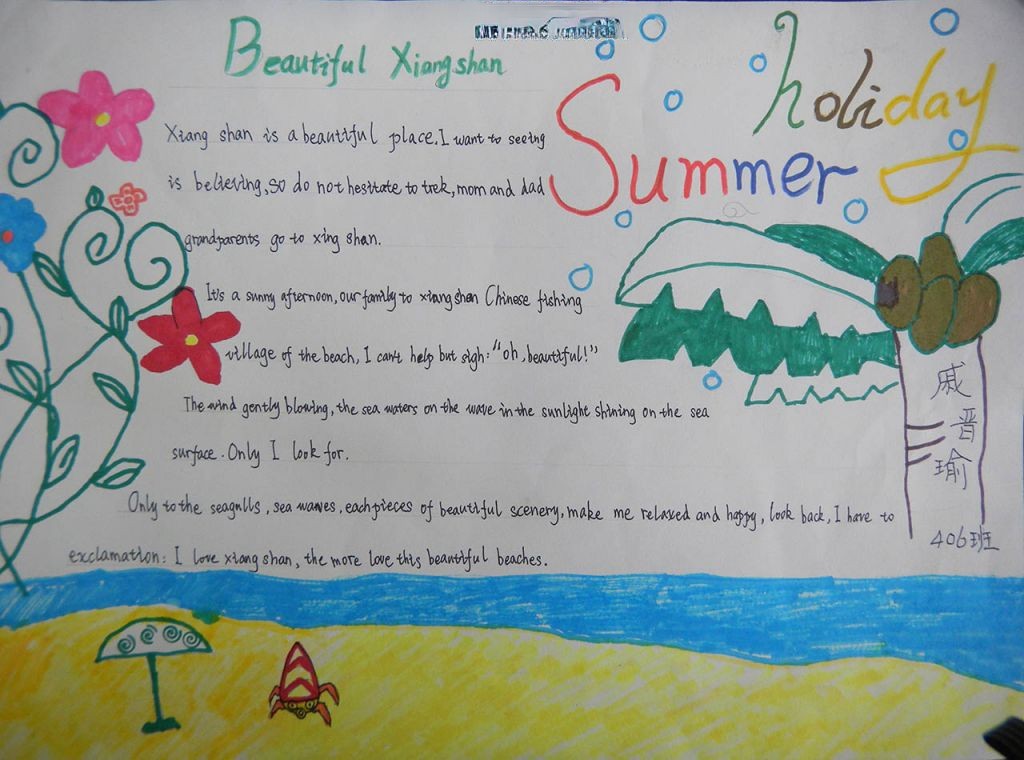 Beautiful Xiangshan
holiday
Summer
Xiang shan is a beautiful place. I want to seeing
is believing, so do not hesitate to trek, mom and dad
grandparents go to xing shan.
It's a sunny afternoon, our family to xiangshan Chinese fishing
village of the beach, I can't help but sigh: "oh, beautiful!"
The wind gently blowing, the sea waters on the wave in the sunlight shining on the sea
surface. Only I look for.
Only to the seagulls, sea waves, each pieces of beautiful scenery, make me relaxed and happy, look back, I have to
exclamation: I love xiang shan, the more love this beautiful beaches.
戚
晋
瑜
406班